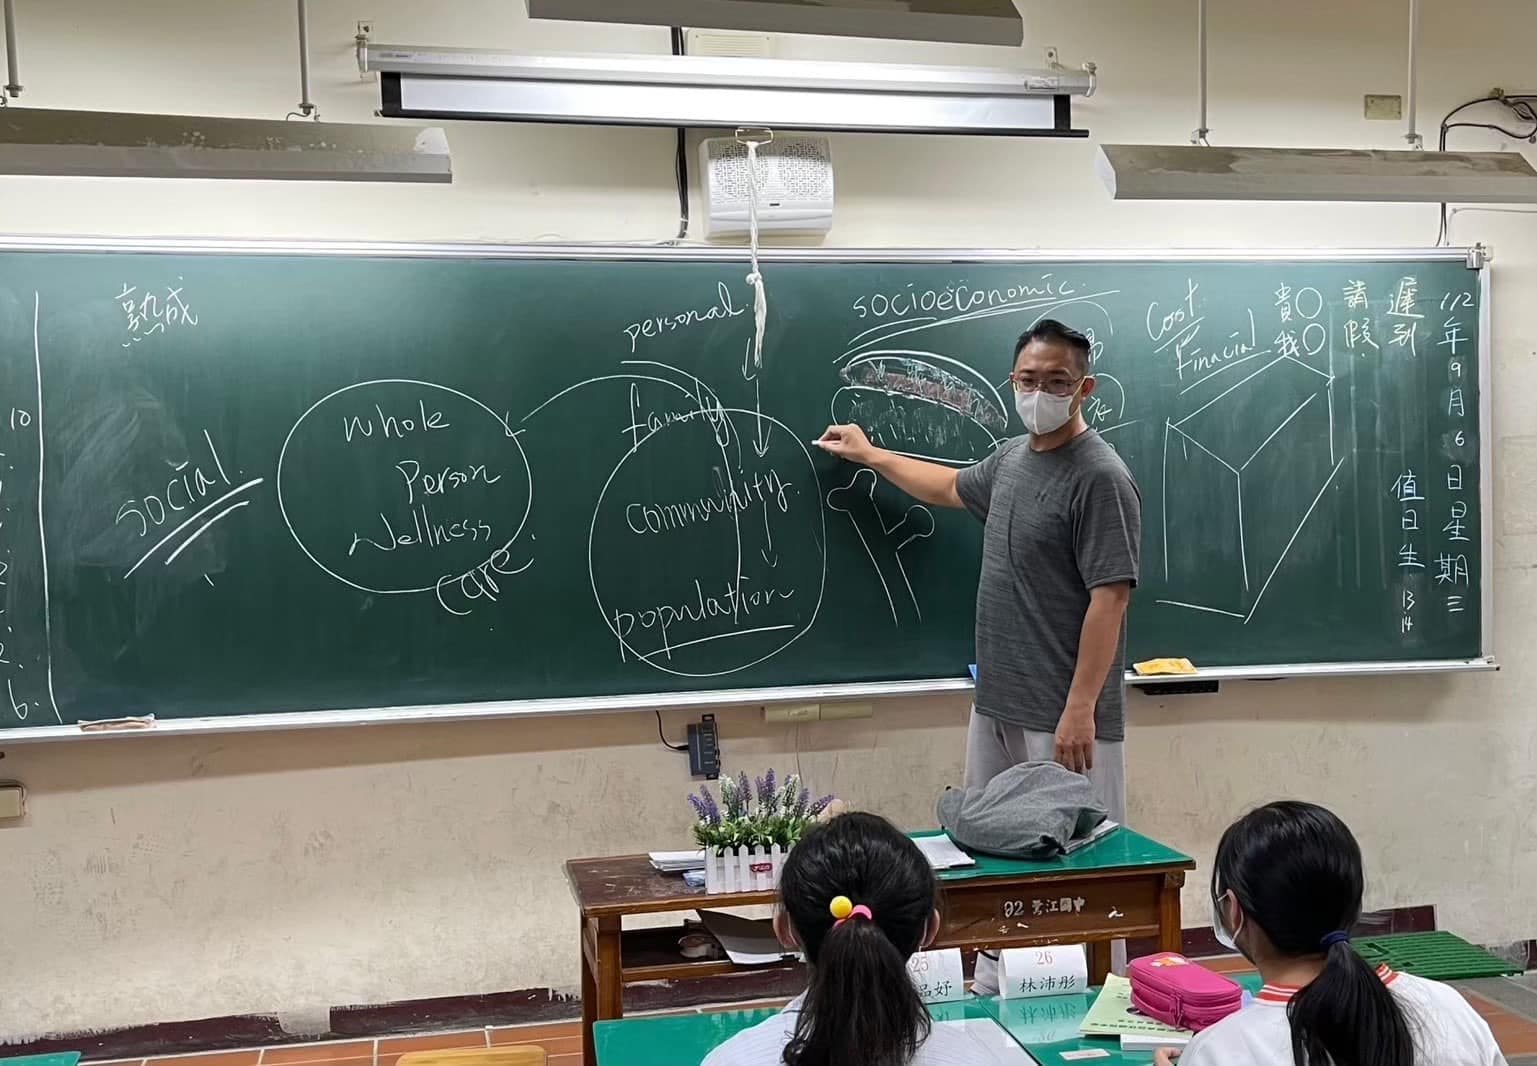 熟成
social.
whole
Person
Wellness
care.
personal
family
community.
population
socioeconomic.
Cost
Finacial
貴○
我○
請假
遲到
112年9月6日星期三
值日生 13 14
10
6.
02 鷺江國中
25
品妤
26
林沛彤